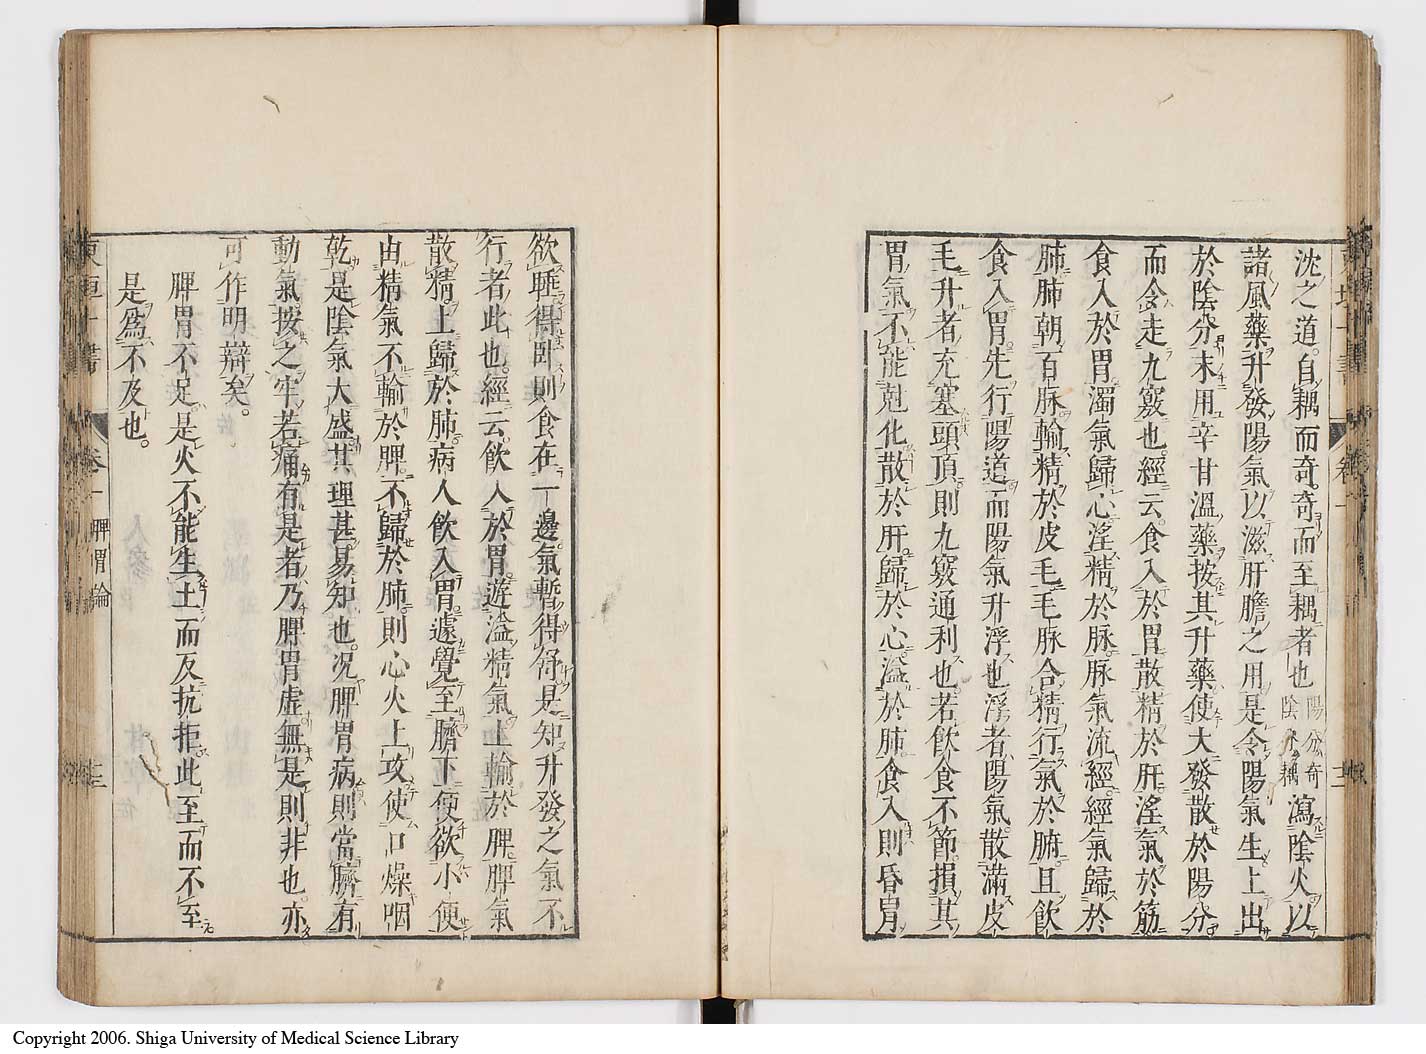 沈之道自耦而奇奇而至耦者也陽分奇陰分耦瀉陰火以
諸風藥升發陽氣以滋肝膽之用是令陽氣生上出
於陰分末用辛甘溫藥按其升藥使大發散於陽分
而令走九竅也經云食入於胃散精於肝淫氣於筋
食入於胃濁氣歸心淫精於脉脉氣流經經氣歸於
肺肺朝百脉輸精於皮毛毛脉合精行氣於腑且飲
食入胃先行陽道而陽氣升浮也浮者陽氣散滿皮
毛升者充塞頭頂則九竅通利也若飲食不節損其
胃氣不能剋化散於肝歸於心溢於肺食入則昏冐
欲睡得卧則食在一邊氣暫得舒是知升發之氣不
行者此也經云飲入於胃遊溢精氣上輸於脾脾氣
散精上歸於肺病人飲入胃遽覺至臍下便欲小便
由精氣不輸於脾不歸於肺則心火上攻使口燥咽
乾是陰氣大盛其理甚易知也況脾胃病則當臍有
動氣按之牢若痛有是者乃脾胃虛無是則非也亦
可作明辯矣。
脾胃不足是火不能生土而反抗拒此至而不至
是爲不及也。
東垣十書 卷一 脾胃論 十三
Copyright 2006. Shiga University of Medical Science Library